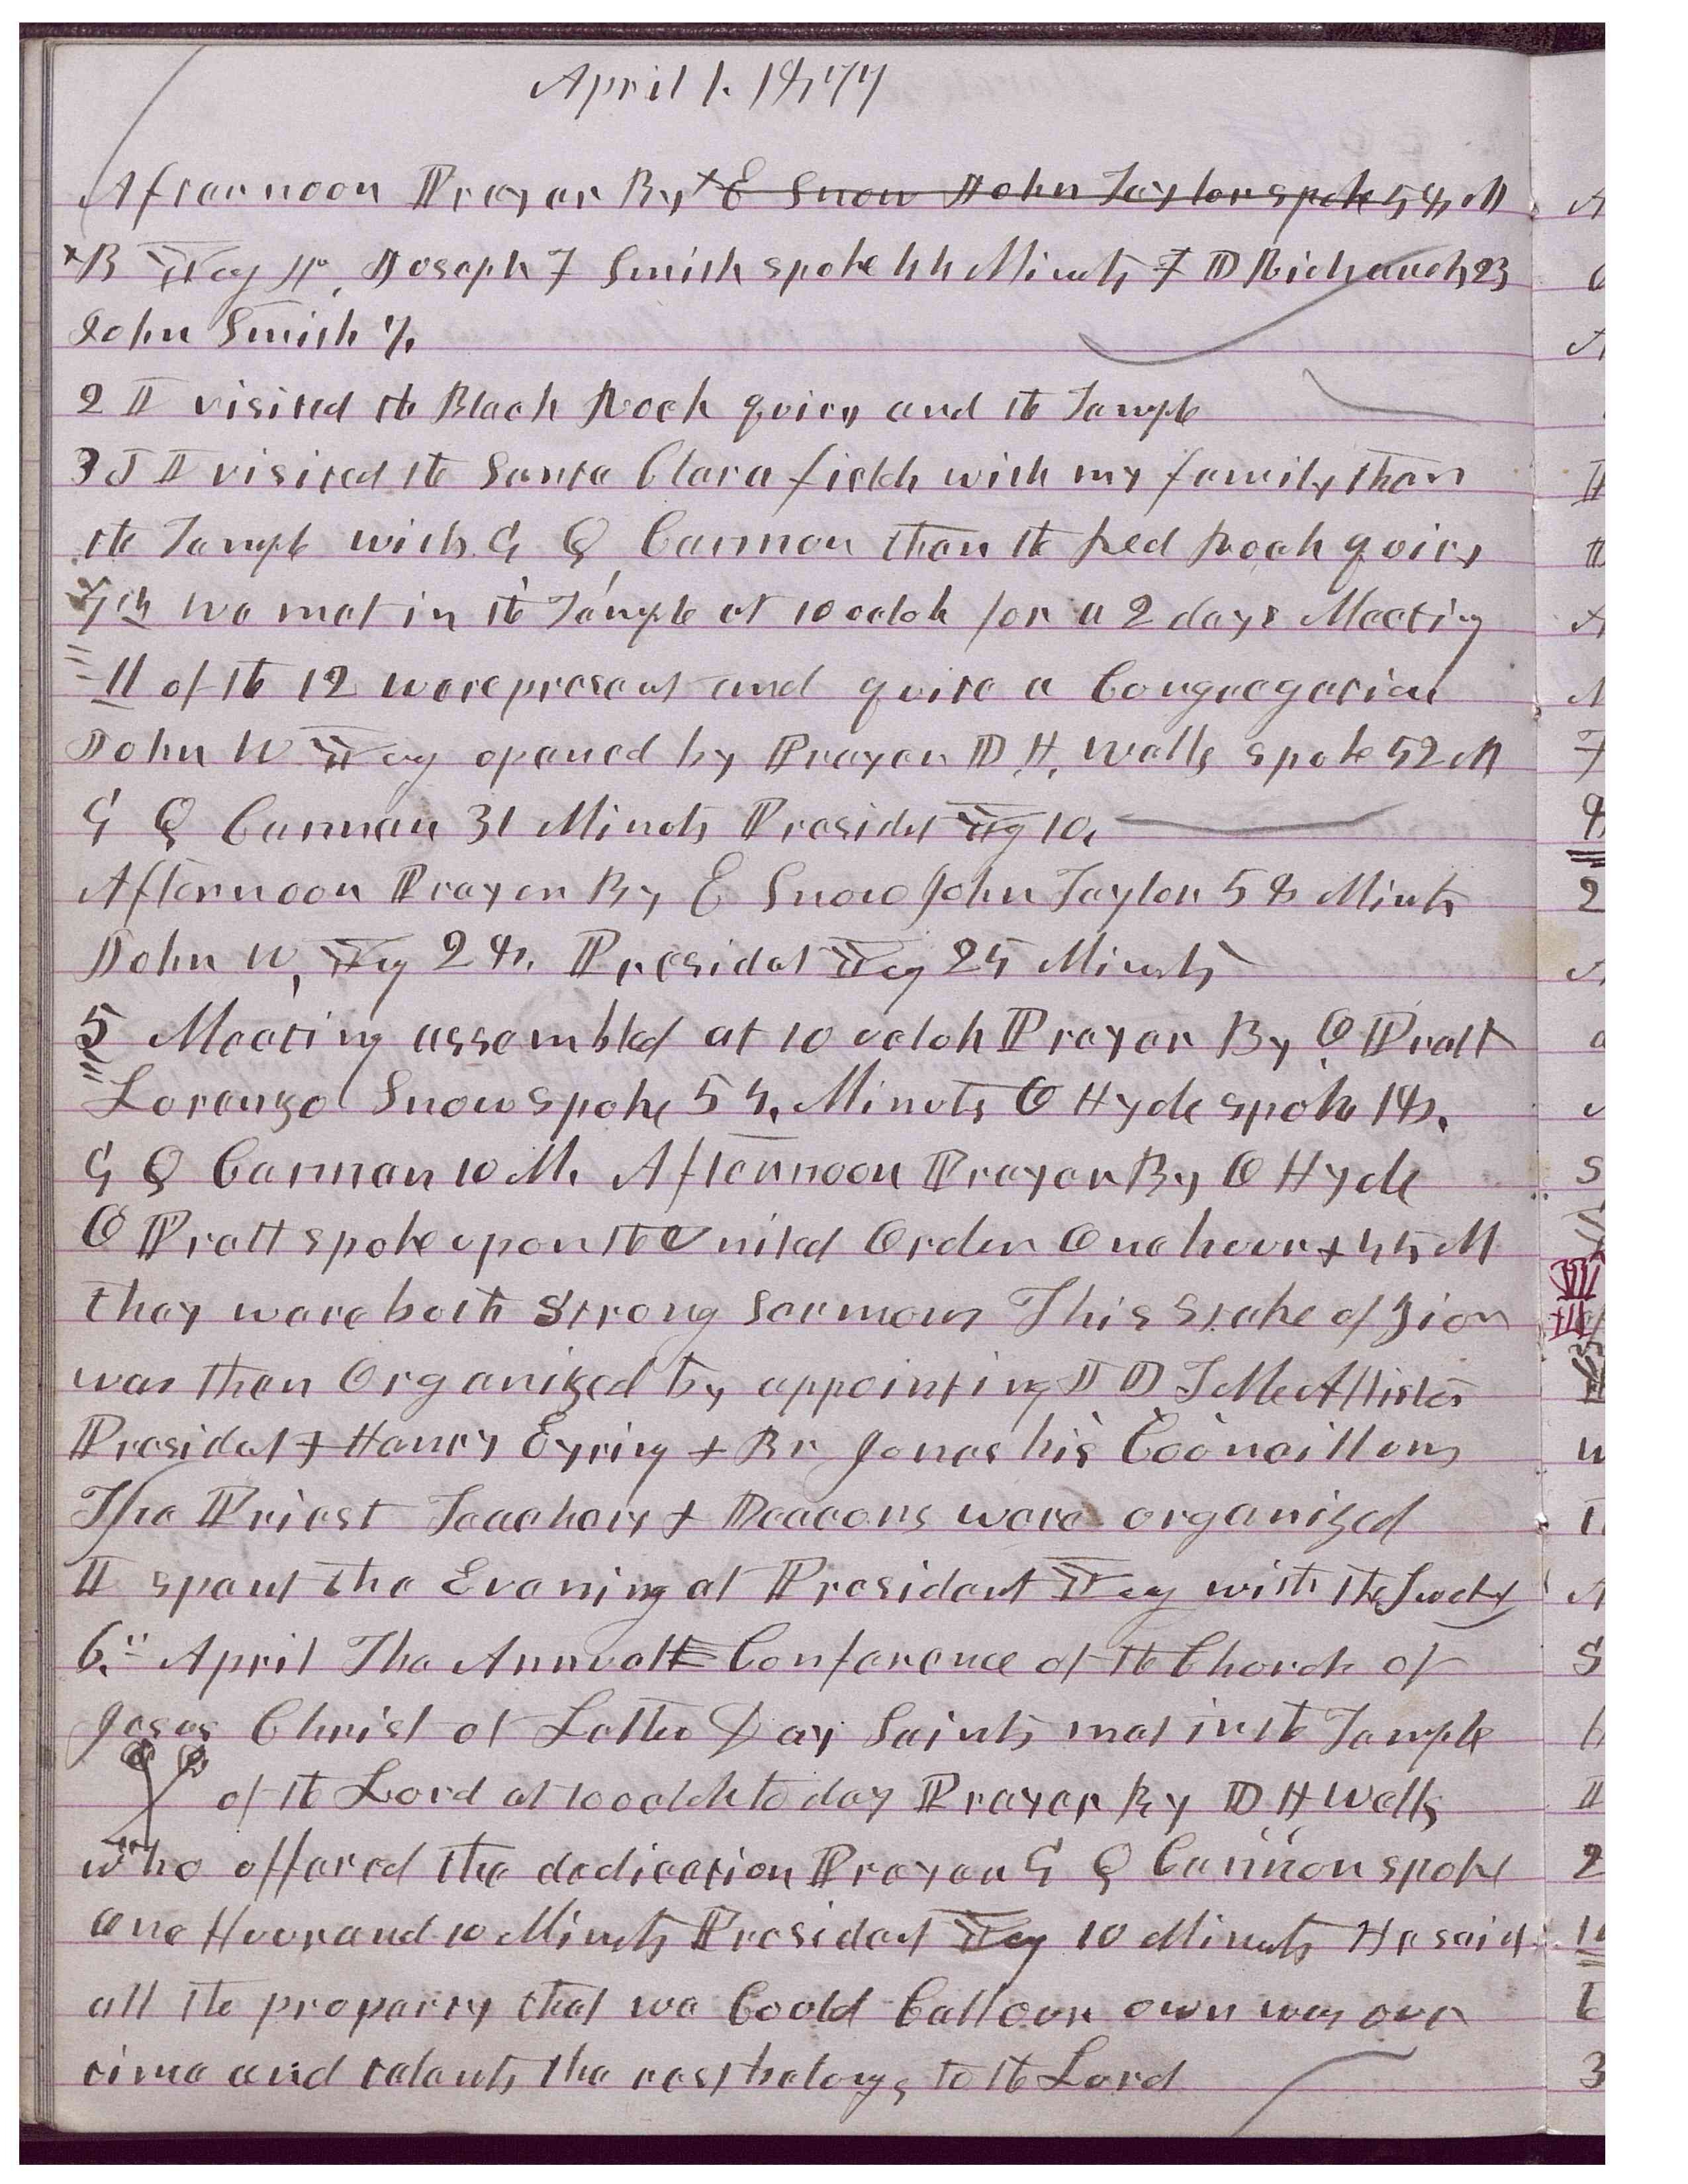 April 1. 1877
Afternoon Prayer By x E Snow John Taylor spoke 58 M
x B Yg Jr, Joseph F Smith spoke 44 Minuts F D Richards 23
John Smith 7.
2 I visited the Black Rock quiry and the Temple
3d I visited the Santa Clara fields with my family then
the Temple with G Q Cannon then the Red Rock quiry
4th we met in the Temple at 10 oclok for a 2 days Meeting
11 of the 12 were present and quite a Congregation
John W Yg opened by Prayer D. H. Wells spoke 52 M
G Q Cannon 31 Minuts Presidet Yg 10.
Afternoon Prayer By E Snow John Taylor 58 Minuts
John W. Yg 28. Presidet Yg 25 Minuts
5 Meeting assembled at 10 oclok Prayer By O Pratt
Lorenzo Snow spoke 54. Minuts O Hyde spoke 18.
G Q Cannon 10 M. Afternoon Prayer By O Hyde
O Pratt spoke upon the United Order One hour + 45 M
they were both Strong Sermons This Stake of Zion
was then Organized by appointing J D T McAllister
Presidet + Henry Eyring + Br Jones his Councillors
The Priest Teachers + Deacons were organized
I spent the Evening at President Yg with the
6.th April The Annual Conference of the Church of
Jesus Christ of Latter Day Saints met in the Temple
of the Lord at 10 oclok to day Prayer By D H Wells
who offered the dedication Prayer G Q Cannon spoke
one Hour and 10 Minuts President Yg 10 Minuts He said
all the property that we Could Call our own was our
time and talents the rest belongs to the Lord